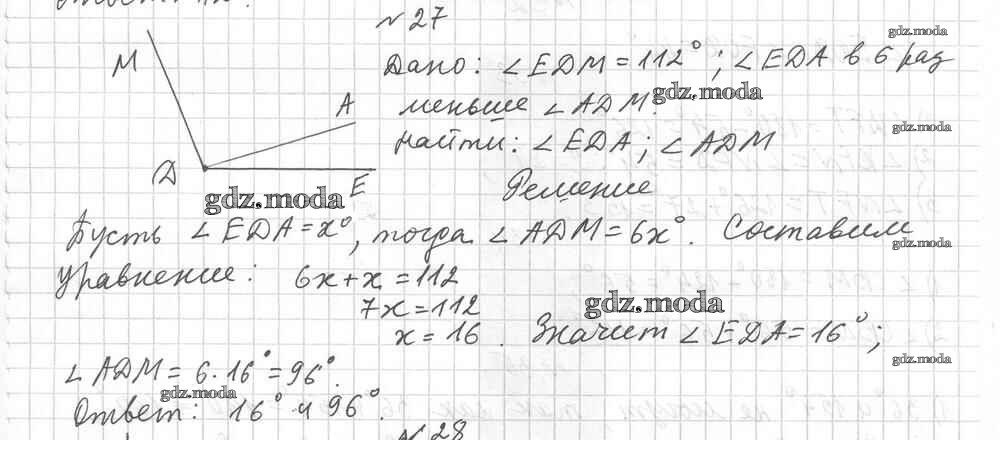 № 27
gdz.moda
M
Дано: ∠EDM = 112°; ∠EDA в 6 раз
A
меньше ∠ADM.
gdz.moda
gdz.moda
Найти: ∠EDA; ∠ADM
D
E
Решение
gdz.moda
gdz.moda
Пусть ∠EDA = x°, тогда ∠ADM = 6x°. Составим
gdz.moda
уравнение: 6x + x = 112
7x = 112
gdz.moda
x = 16. Значит ∠EDA = 16°;
gdz.moda
∠ADM = 6·16° = 96°.
gdz.moda
Ответ: 16° и 96°.
№ 28